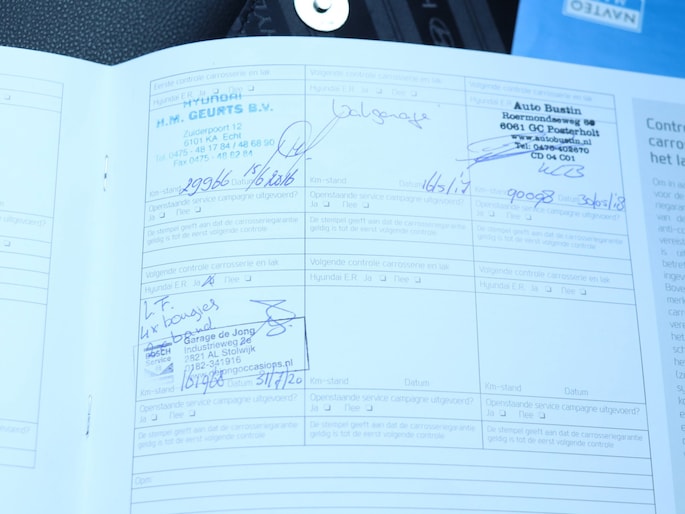 NAVTEQ
Eerste controle carrosserie en lak
Hyundai E.R. Ja ❑ Nee ❑
HYUNDAI
H.M. GEURTS B.V.
Zuiderpoort 12
6101 KA Echt
Tel 0475 - 48 17 84 / 48 68 90
Fax 0475 - 48 62 84
Km-stand 29966 Datum 15/6 2016
Openstaande service campagne uitgevoerd?
Ja ❑ Nee ❑
De stempel geeft aan dat de carrosseriegarantie
geldig is tot de eerst volgende controle
Volgende controle carrosserie en lak
Hyundai E.R. Ja ❑ Nee ❑
Km-stand Datum 16/5/17
Openstaande service campagne uitgevoerd?
Ja ❑ Nee ❑
De stempel geeft aan dat de carrosseriegarantie
geldig is tot de eerst volgende controle
Volgende controle carrosserie en lak
Hyundai E.R.
Auto Bustin
Roermondseweg
6061 GC Posterholt
www.autobustin.nl
Tel: 0475-402670
CD 04 C01
Km-stand 90098 Datum 30/05/18
Openstaande service campagne uitgevoerd?
Ja ❑ Nee ❑
De stempel geeft aan dat de carrosseriegarantie
geldig is tot de eerst volgende controle
Volgende controle carrosserie en lak
Hyundai E.R. Ja Nee ❑
4x bougies
Garage de Jong
Industrieweg 2e
2821 AL Stolwijk
0182-341916
BOSCH
Service
Km-stand 161968 Datum 31/7/20
Openstaande service campagne uitgevoerd?
Ja ❑ Nee ❑
De stempel geeft aan dat de carrosseriegarantie
geldig is tot de eerst volgende controle
Volgende controle carrosserie en lak
Hyundai E.R. Ja ❑ Nee ❑
Km-stand Datum
Openstaande service campagne uitgevoerd?
Ja ❑ Nee ❑
De stempel geeft aan dat de carrosseriegarantie
geldig is tot de eerst volgende controle
Volgende controle carrosserie en lak
Hyundai E.R. Ja ❑ Nee ❑
Km-stand Datum
Openstaande service campagne uitgevoerd?
Ja ❑ Nee ❑
De stempel geeft aan dat de carrosseriegarantie
geldig is tot de eerst volgende controle
Opm